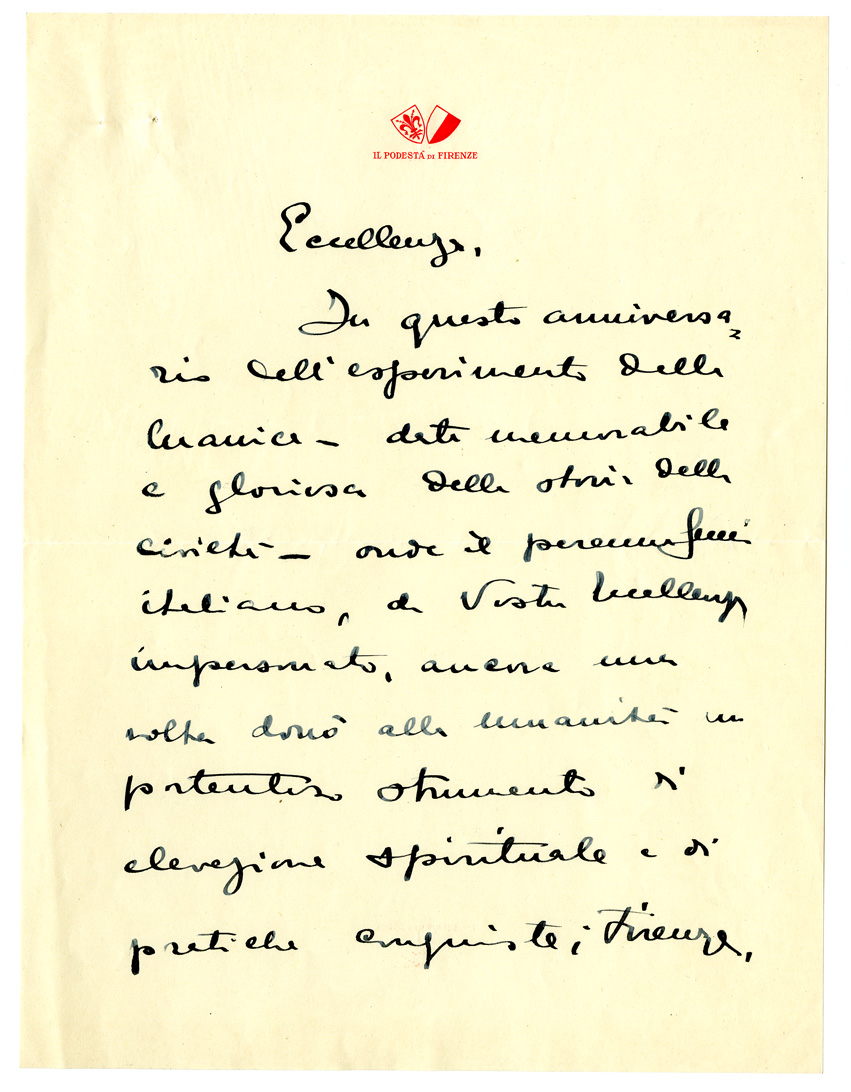 IL PODESTÁ DI FIRENZE
Eccellenza,
In questo anniversa=
rio dell'esperimento della
Manica – data memorabile
e gloriosa della storia della
civiltà – onde il perenne genio
italiano, da Vostra Eccellenza
impersonato, ancora una
volta donò alla umanità un
portentoso strumento di
elevazione spirituale e di
pratiche conquiste; Firenze,